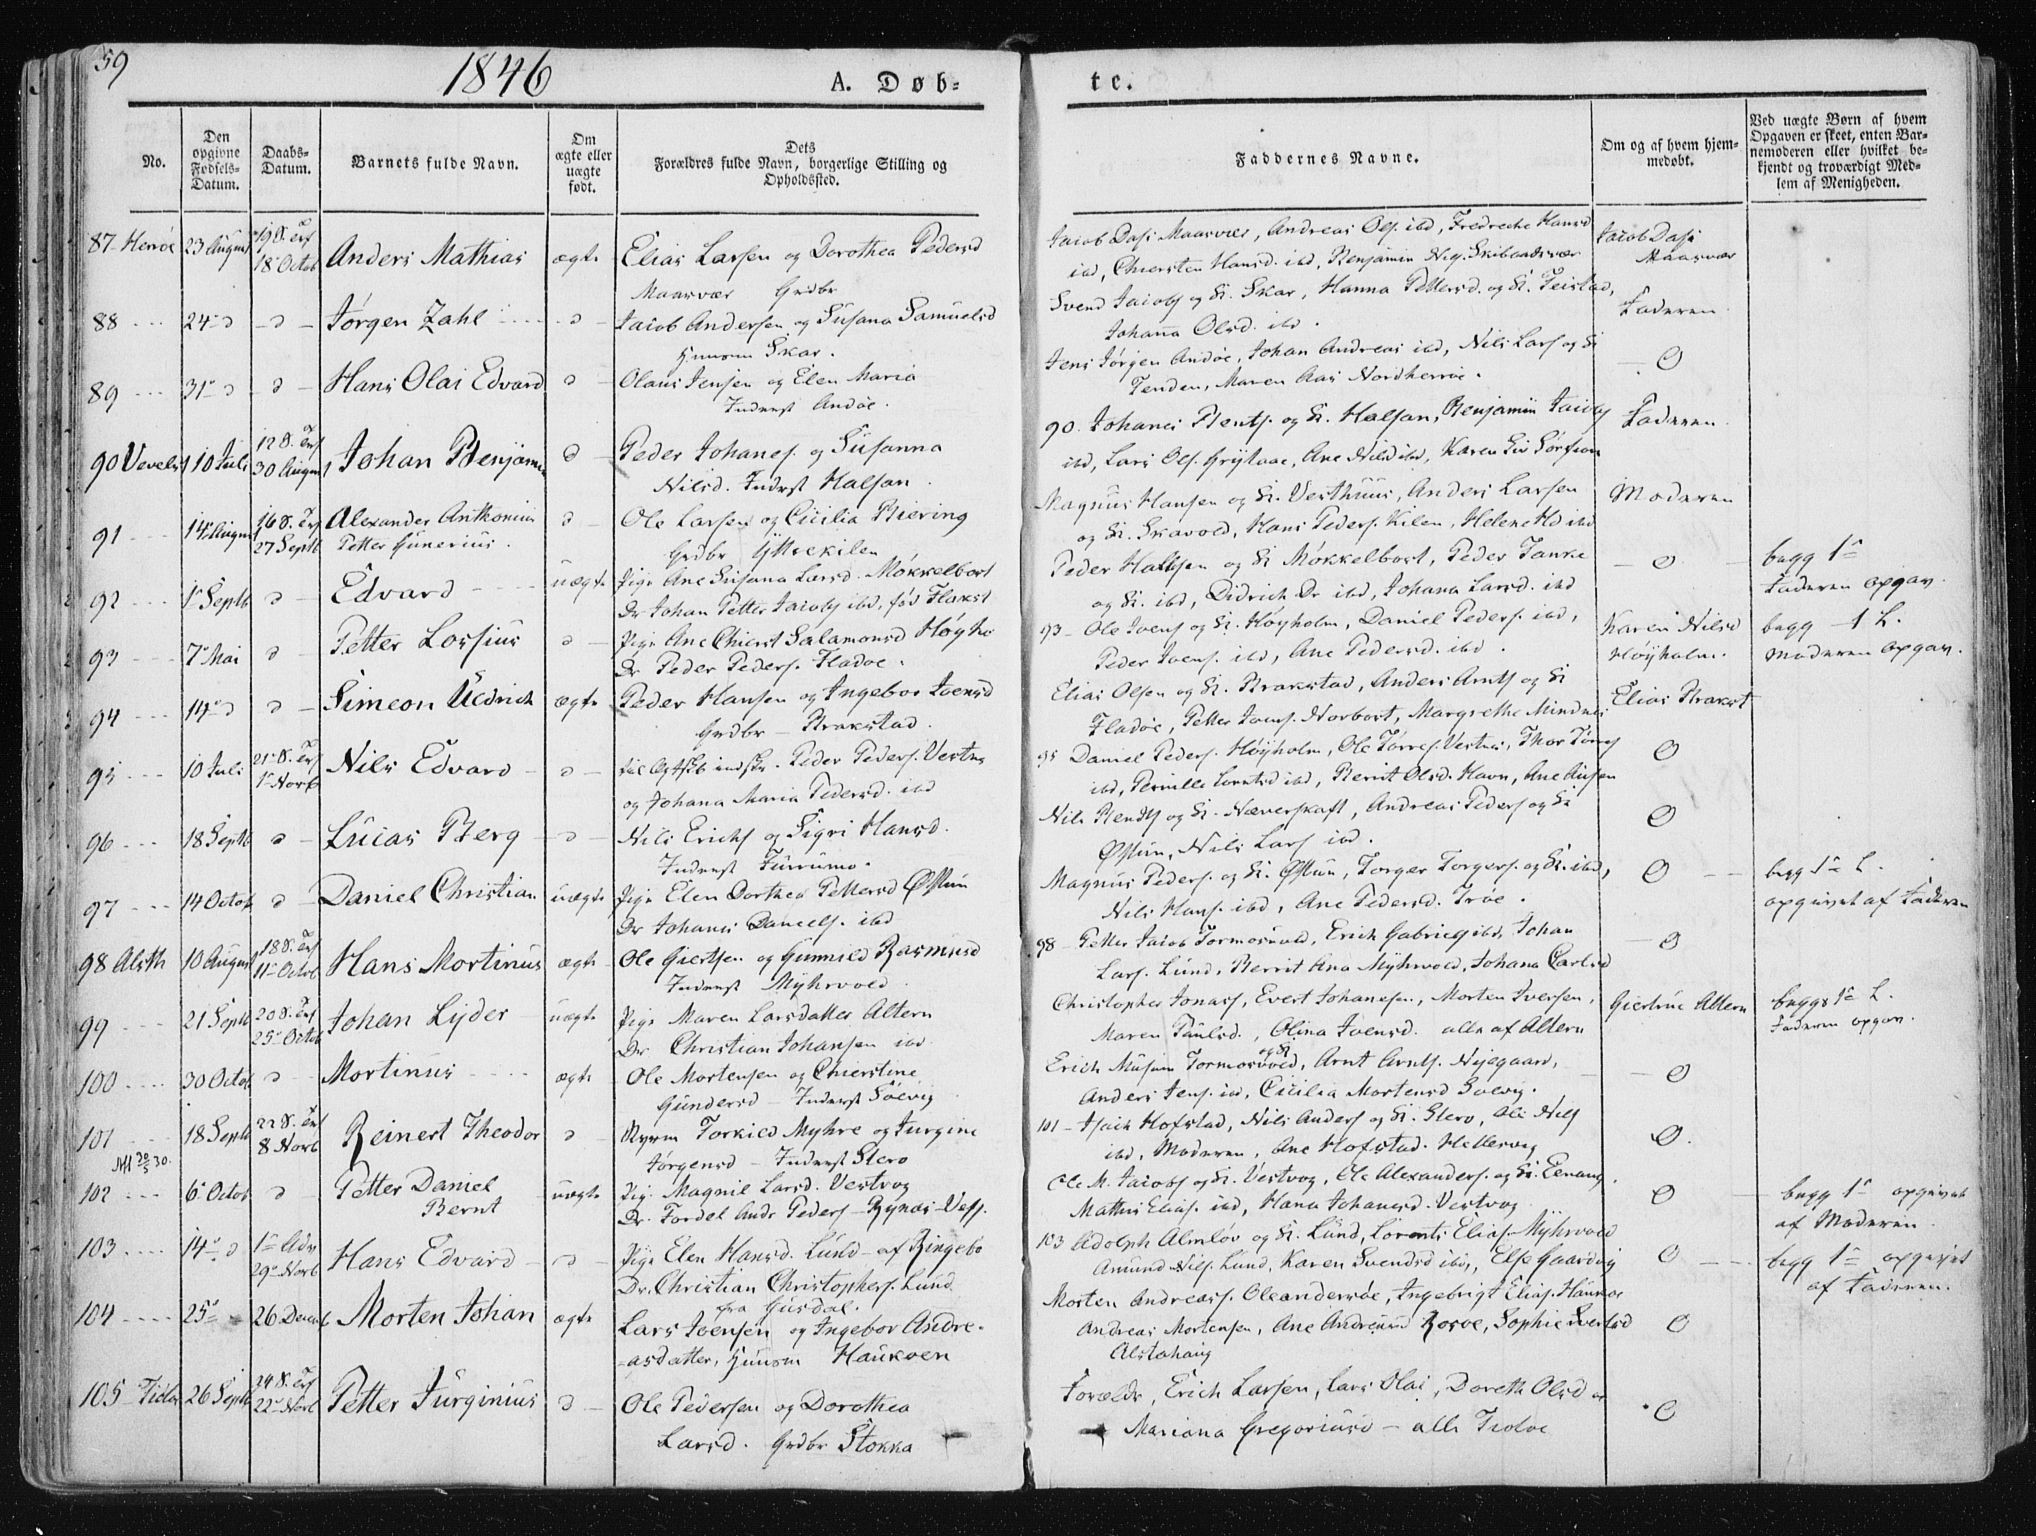 59
1846
A. Døb-
te.
No.
Den opgivne Fødsels-Datum.
Daabs-Datum.
Barnets fulde Navn.
Om ægte eller uægte født.
Dets Forældres fulde Navn, borgerlige Stilling og Opholdssted.
Faddernes Navne.
Om og af hvem hjem-medøbt.
Ved uægte Børn af hvem Opgaven er skeet, enten Bar-nemoderen eller hvilket be-kjendt og troværdigt Med-lem af Menigheden.
87 Herrøe 23 August 19 S. Trf 18 Octob Anders Mathias ægte Elias Larsen og Dorothea Pedersd
Maasvær Grdbr
Jacob Dass Maasvær, Andreas Ols. ibd, Fredreche Hansd Jacob Dass
ibd, Chiersten Hansd. ibd, Benjamin Nig. Skibaadsvær Maasvær
88 24 d d Jørgen Zahl d Jacob Andersen og Susana Samuelsd
Huusm Skar.
Svend Jacobs og K. Skar, Hanna Pettersd. og K. Teistad, Faderen
Johana Olsd. ibd.
89 31 d d Hans Olai Edvard d Olaus Jensen og Elen Maria
Inderst Andøe.
Jens Jørgen Andøe, Johan Andreas ibd, Nils Lars og K
Tenden, Maren Aas Nordherrøe.
90 Vevelst 10 Juli 12 S. Trf 30 August Johan Benjamin d Peder Johanes. og Susanna
Nilsd. Inderst Halsan.
90. Johanes Bents. og K. Halsan, Benjamin Jacobs Faderen
ibd, Lars Ols. Grytaae, Ane Nilsd ibd, Karen
91 14 August 16 S. Trf 27 Septb Alexander Anthonius d Ole Larsen og Cicilia Biering
Petter Gunerius. Grdbr Yttrekilen
Magnus Hansen og K. Vesthuus, Anders Larsen Moderen
og K. Skavold, Hans Peders. Kilen, Helene Hd ibd
92 1 Septb d Edvard uægte Pige Ane Susana Larsd. Møkkelbost
Dr Johan Petter Jacobs ibd, fød Flakst
Peder Halsen og K Møkkelbost, Peder Janke begg 1
og K. ibd, Didrich Dr ibd, Johana Larsd. ibd Faderen opgav.
93 7 Mai d Petter Lossius d Pige Ane Chierst Salamonsd Høyho
Dr Peder Peders. Fladøe.
93 Ole Joens og K. Høyholm, Daniel Peders. ibd, Karen Nilsd begg 1 L.
Peder Joens. ibd, Ane Pedersd. ibd. Høyholm. Moderen opgav.
94 14 d d Simeon Uldrich ægte Peder Hansen og Ingebor Joensd
Grdbr Brakstad.
Elias Olsen og K. Brakstad, Anders Arnts og K Elias Brakst
Fladøe, Petter Joens. Norbost, Margrethe Mindnes
95 10 Juli 21 S. Trf 1 Novb Nils Edvard d til Ægtsk indskr. Peder Peders. Vestnes
og Johana Maria Pedersd. ibd
95 Daniel Peders. Høyholm, Ole Tørres. Vestnes, Thor Tørres
ibd, Pernille Lorntsd ibd, Berrit Olsd. Havn, Ane Jensen
96 18 Septb d Lucas Berg d Nils Erichs og Sigri Hansd.
Inderst Furumo.
Nils Bendts og K. Næverskaft, Andreas Peders og K
Østun, Nils Lars ibd.
97 14 Octob d Daniel Christian uægte Pige Elen Dorthea Pettersd Østun
Dr Johanes Daniels. ibd
Magnus Peders. og K. Østun, Torger Torgers. og K. ibd, begg 1 L.
Nils Hans. ibd, Ane Pedersd. Trøe. opgivet af Faderen
98 Alsth 10 August 18 S. Trf 11 Octob Hans Mortinus ægte Ole Giertsen og Gunnild Rasmusd
Inderst Myhrvold
98 Petter Jacob Tormosvold, Erich Gabriels ibd, Johan
Lars. Lund, Berrit Ana Myhrvold, Johana Carlsd
99 21 Septb 20 S. Trf 25 Octob Johan Lyder uægte Pige Maren Larsdatter Altern
Dr Christian Johansen ibd
Christopher Jonass, Evert Johanesen, Morten Iversen, Giertrue Altern begge 1 L.
Maren Paulsd., Olina Joensd. alle af Altern Faderen opgav.
100 30 Octob d Mortinus ægte Ole Mortensen og Chierstine
Gundersd Inderst Sølvig
Erich Tormosvold og K, Arnt Arnts. Nyegaard,
Anders Jens. ibd, Cicilia Mortensd Solvig.
101 18 Septb 22 S. Trf 8 Novb Reinert Theodor d Torkild Myhre og Jurgine
Jørgensd Inderst Stero
101 Isach Hofstad, Nils Anders og K. Stero, Ole Nils
ibd, Moderen, Ane Hofstad. Hellesvig
102 6 Octob d Petter Daniel uægte Pig. Magnil Larsd. Vestvog
Bernt Dr. Fordel Ands Peders Rynas Vefs.
Ole M. Jacobs og K. Vestvog, Ole Alexanders. og K. begg 1 opgivet
Mathis Elias. ibd, Hana Johansd. Vestvog af Moderen.
103 14 d 1 Adv 29 Novb Hans Edvard d Pige Elen Hansd. Lund af Ringebo
Dr. Christian Christophers. Lund
fra Gusdal.
103 Adolph Almløv og K. Lund, Lorents Elias. Myhrvold
Amund Nils. Lund, Karen Svendsd ibd, Else Gaardvig begg 1 opgivet
af Faderen.
104 25 26 Decemb Morten Johan ægte Lars Joensen og Ingebor Andre-
asdatter, Huusm Haukøen
Morten Andreass. Oleanderøe, Ingebrigt Elias. Haukøe
Andreas Mortensen, Ane Andreasd Rosøe, Sophie Evertsd
Alstahaug
105 Tiøtø 26 Septb 24 S. Trf 22 Novb Petter Jurginius d Ole Pedersen og Dorothea
Larsd. Grdbr Stokka
Forældr, Erich Larsen, Lars Olai, Doreth Olsd og
Mariana Gregoriusd alle Tiøtøe